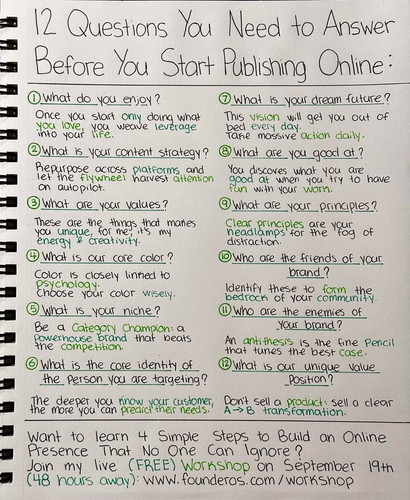 12 Questions You Need to Answer
Before You Start Publishing Online:
① What do you enjoy?
Once you start only doing what
you love, you weave leverage
into your life.
② What is your content strategy?
Repurpose across platforms and
let the flywheel harvest attention
on autopilot.
③ What are your values?
These are the things that makes
you unique, for me, it's my
energy & creativity.
④ What is our core color?
Color is closely linked to
psychology.
Choose your color wisely.
⑤ What is your niche?
Be a Category Champion: a
powerhouse brand that beats
the competition.
⑥ What is the core identity of
the person you are targeting?
The deeper you know your customer,
the more you can predict their needs.
⑦ What is your dream future?
This vision will get you out of
bed every day.
Take massive action daily.
⑧ What are you good at?
You discover what you are
good at when you try to have
fun with your work.
⑨ What are your principles?
Clear principles are your
headlamps for the fog of
distraction.
⑩ Who are the friends of your
brand?
Identify these to form the
bedrock of your community.
⑪ Who are the enemies of
your brand?
An antithesis is the fine Pencil
that tunes the best case.
⑫ What is our unique value
position?
Don't sell a product: sell a clear
A→B transformation.
Want to learn 4 Simple Steps to Build an Online
Presence That No One Can Ignore?
Join my live (FREE) Workshop on September 19th
(48 hours away): www.founderos.com/workshop